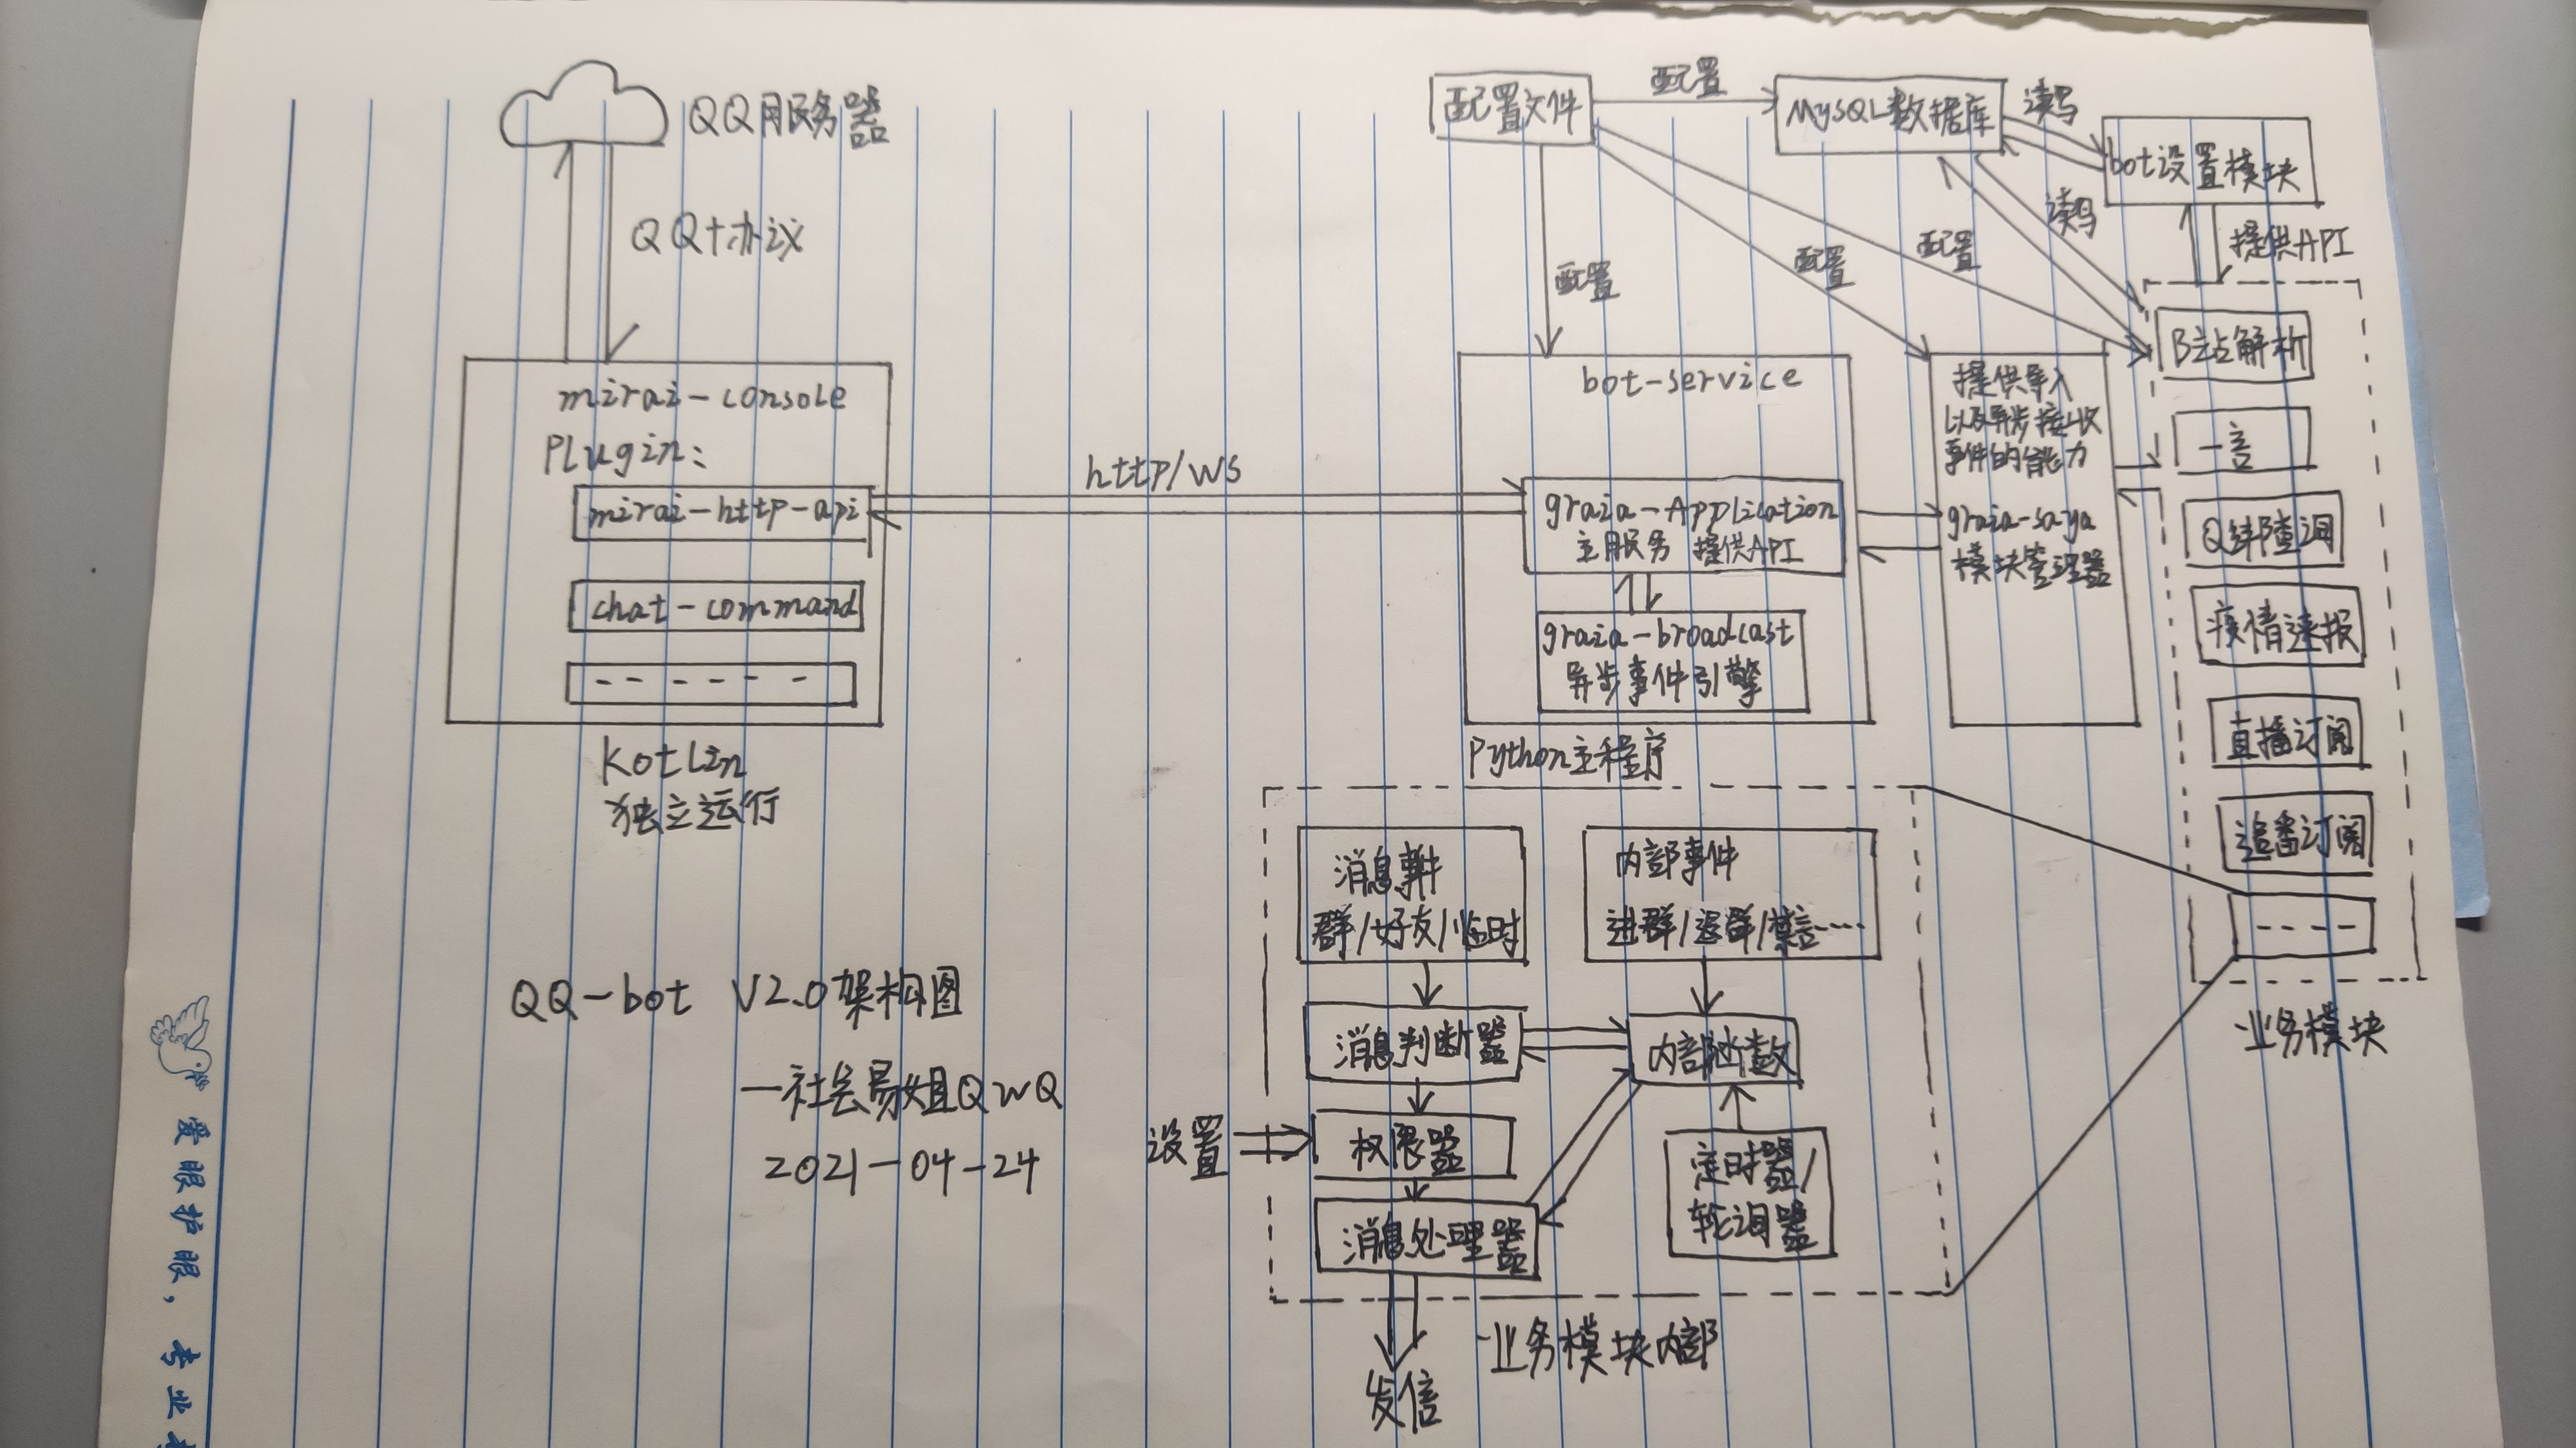 QQ服务器
QQ协议
mirai-console
Plugin:
mirai-http-api
chat-command
------
Kotlin
独立运行
http/ws
配置文件
配置
MySQL数据库
读写
bot设置模块
读写
提供API
配置
配置
配置
bot-service
graia-Application
主服务 提供API
graia-broadcast
异步事件引擎
Python主程序
提供导入
以及异步接收
事件的能力
graia-saya
模块管理器
B站解析
一言
Q绑查询
疫情速报
直播订阅
追番订阅
----
业务模块
消息事件
群/好友/临时
内部事件
进群/退群/禁言……
消息判断器
内部函数
设置
权限器
定时器/
轮询器
消息处理器
业务模块内部
发信
QQ-bot V2.0架构图
—社会易姐QwQ
2021-04-24
爱眼护眼，专业